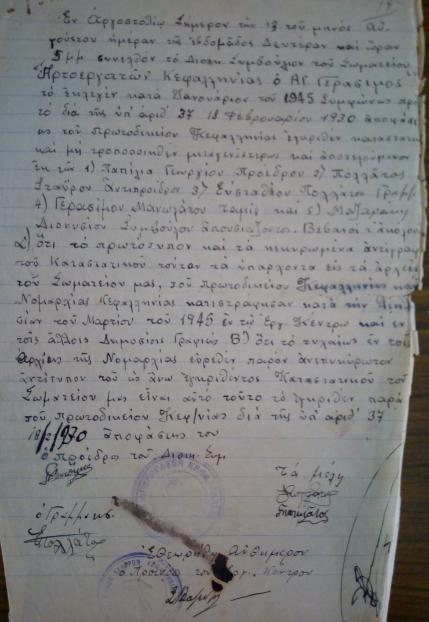 Ἐν Ἀργοστολίῳ Σήμερον τὴν 13 τοῦ μηνὸς Αὐ-
γούστου ἡμέραν τῆς ἑβδομάδος Δευτέραν καὶ ὥραν
5 μμ συνελθὸν τὸ Διοικ. Συμβούλιον τοῦ Σωματείου
Ἀρτοεργατῶν Κεφαλληνίας ὁ Ἅγ. Γεράσιμος
τὸ ἐκλεγὲν κατὰ Ἰανουάριον τοῦ 1945 Συμφώνως πρὸς
τὸ διὰ τῆς ὑπ' ἀριθ 37 18 Φεβρουαρίου 1930 ἀποφάσε-
ως τοῦ Πρωτοδικείου Κεφαλληνίας ἐγκριθὲν καταστατικὸ
καὶ μὴ τροποποιηθὲν μεταγενεστέρως καὶ ἀποτελούμενον
ἐκ τῶν 1) Παπίλια Γεωργίου Προέδρου 2) Πολλάτος
Σταύρου Ἀντιπροέδρου 3) Εὐσταθίου Πολλάτου Γραμμ.
4) Γερασίμου Μανωλάτου Ταμίς καὶ 5) Μαζαράκη
Διονυσίου Συμβούλου ἀπουσιάζοντος. Βεβαιοῖ τ' ἀκόλουθα
α) ὅτι τὸ πρωτότυπον καὶ τὰ κεκυρωμένα ἀντίγραφα
τοῦ Καταστατικοῦ τούτου τὰ ὑπάρχοντα εἰς τὰ ἀρχεῖα
τοῦ Σωματείου μας, τοῦ Πρωτοδικείου Κεφαλληνίας καὶ
Νομαρχίας Κεφαλληνίας κατεστράφησαν κατὰ τὴν
τοῦ Μαρτίου τοῦ 1945 ἐν τῷ Ἐργ. Κέντρῳ καὶ ἐν
τοῖς ἄλλοις Δημοσίοις Γραφείοις Β) ὅτι τὸ τυχαίως ἐν τοῖς
Ἀρχείοις τῆς Νομαρχίας εὑρεθὲν παρὸν ἀνεπικύρωτον
ἀντίτυπον τοῦ ὡς ἄνω ἐγκριθέντος Καταστατικοῦ τοῦ
Σωματείου μας εἶναι αὐτὸ τοῦτο τὸ ἐγκριθὲν παρὰ
τοῦ Πρωτοδικείου Κεφ/νίας διὰ τῆς ὑπ' ἀριθ 37
18/2/1930 ἀποφάσεως του
ὁ πρόεδρος τοῦ Διοικ. Συμ
τὰ μέλη
ὁ Γραμματεύς.
Πολλάτος
Ἐθεωρήθη Αὐθημερὸν
ὁ Πρόεδρος τοῦ Ἐργ. Κέντρου